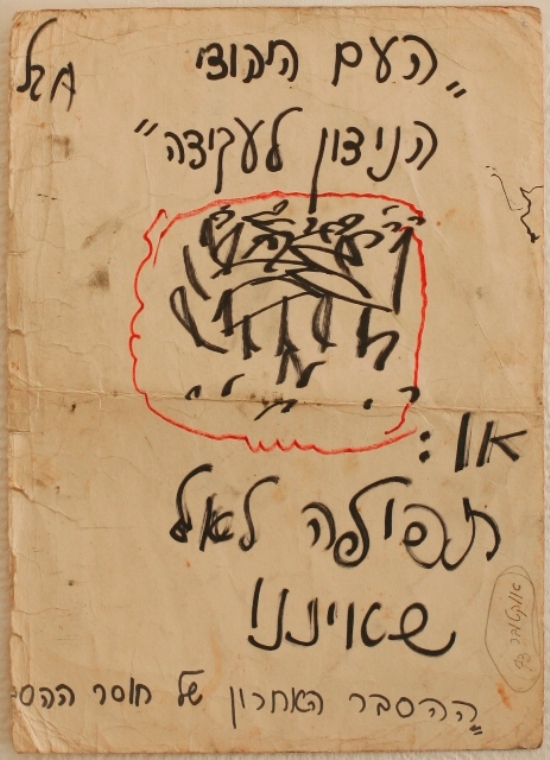 "העם היהודי
הנידון לעקידה"
או:
תפילה לאל
שאיננו
"ההסבר האחרון של חוסר
אוקטובר